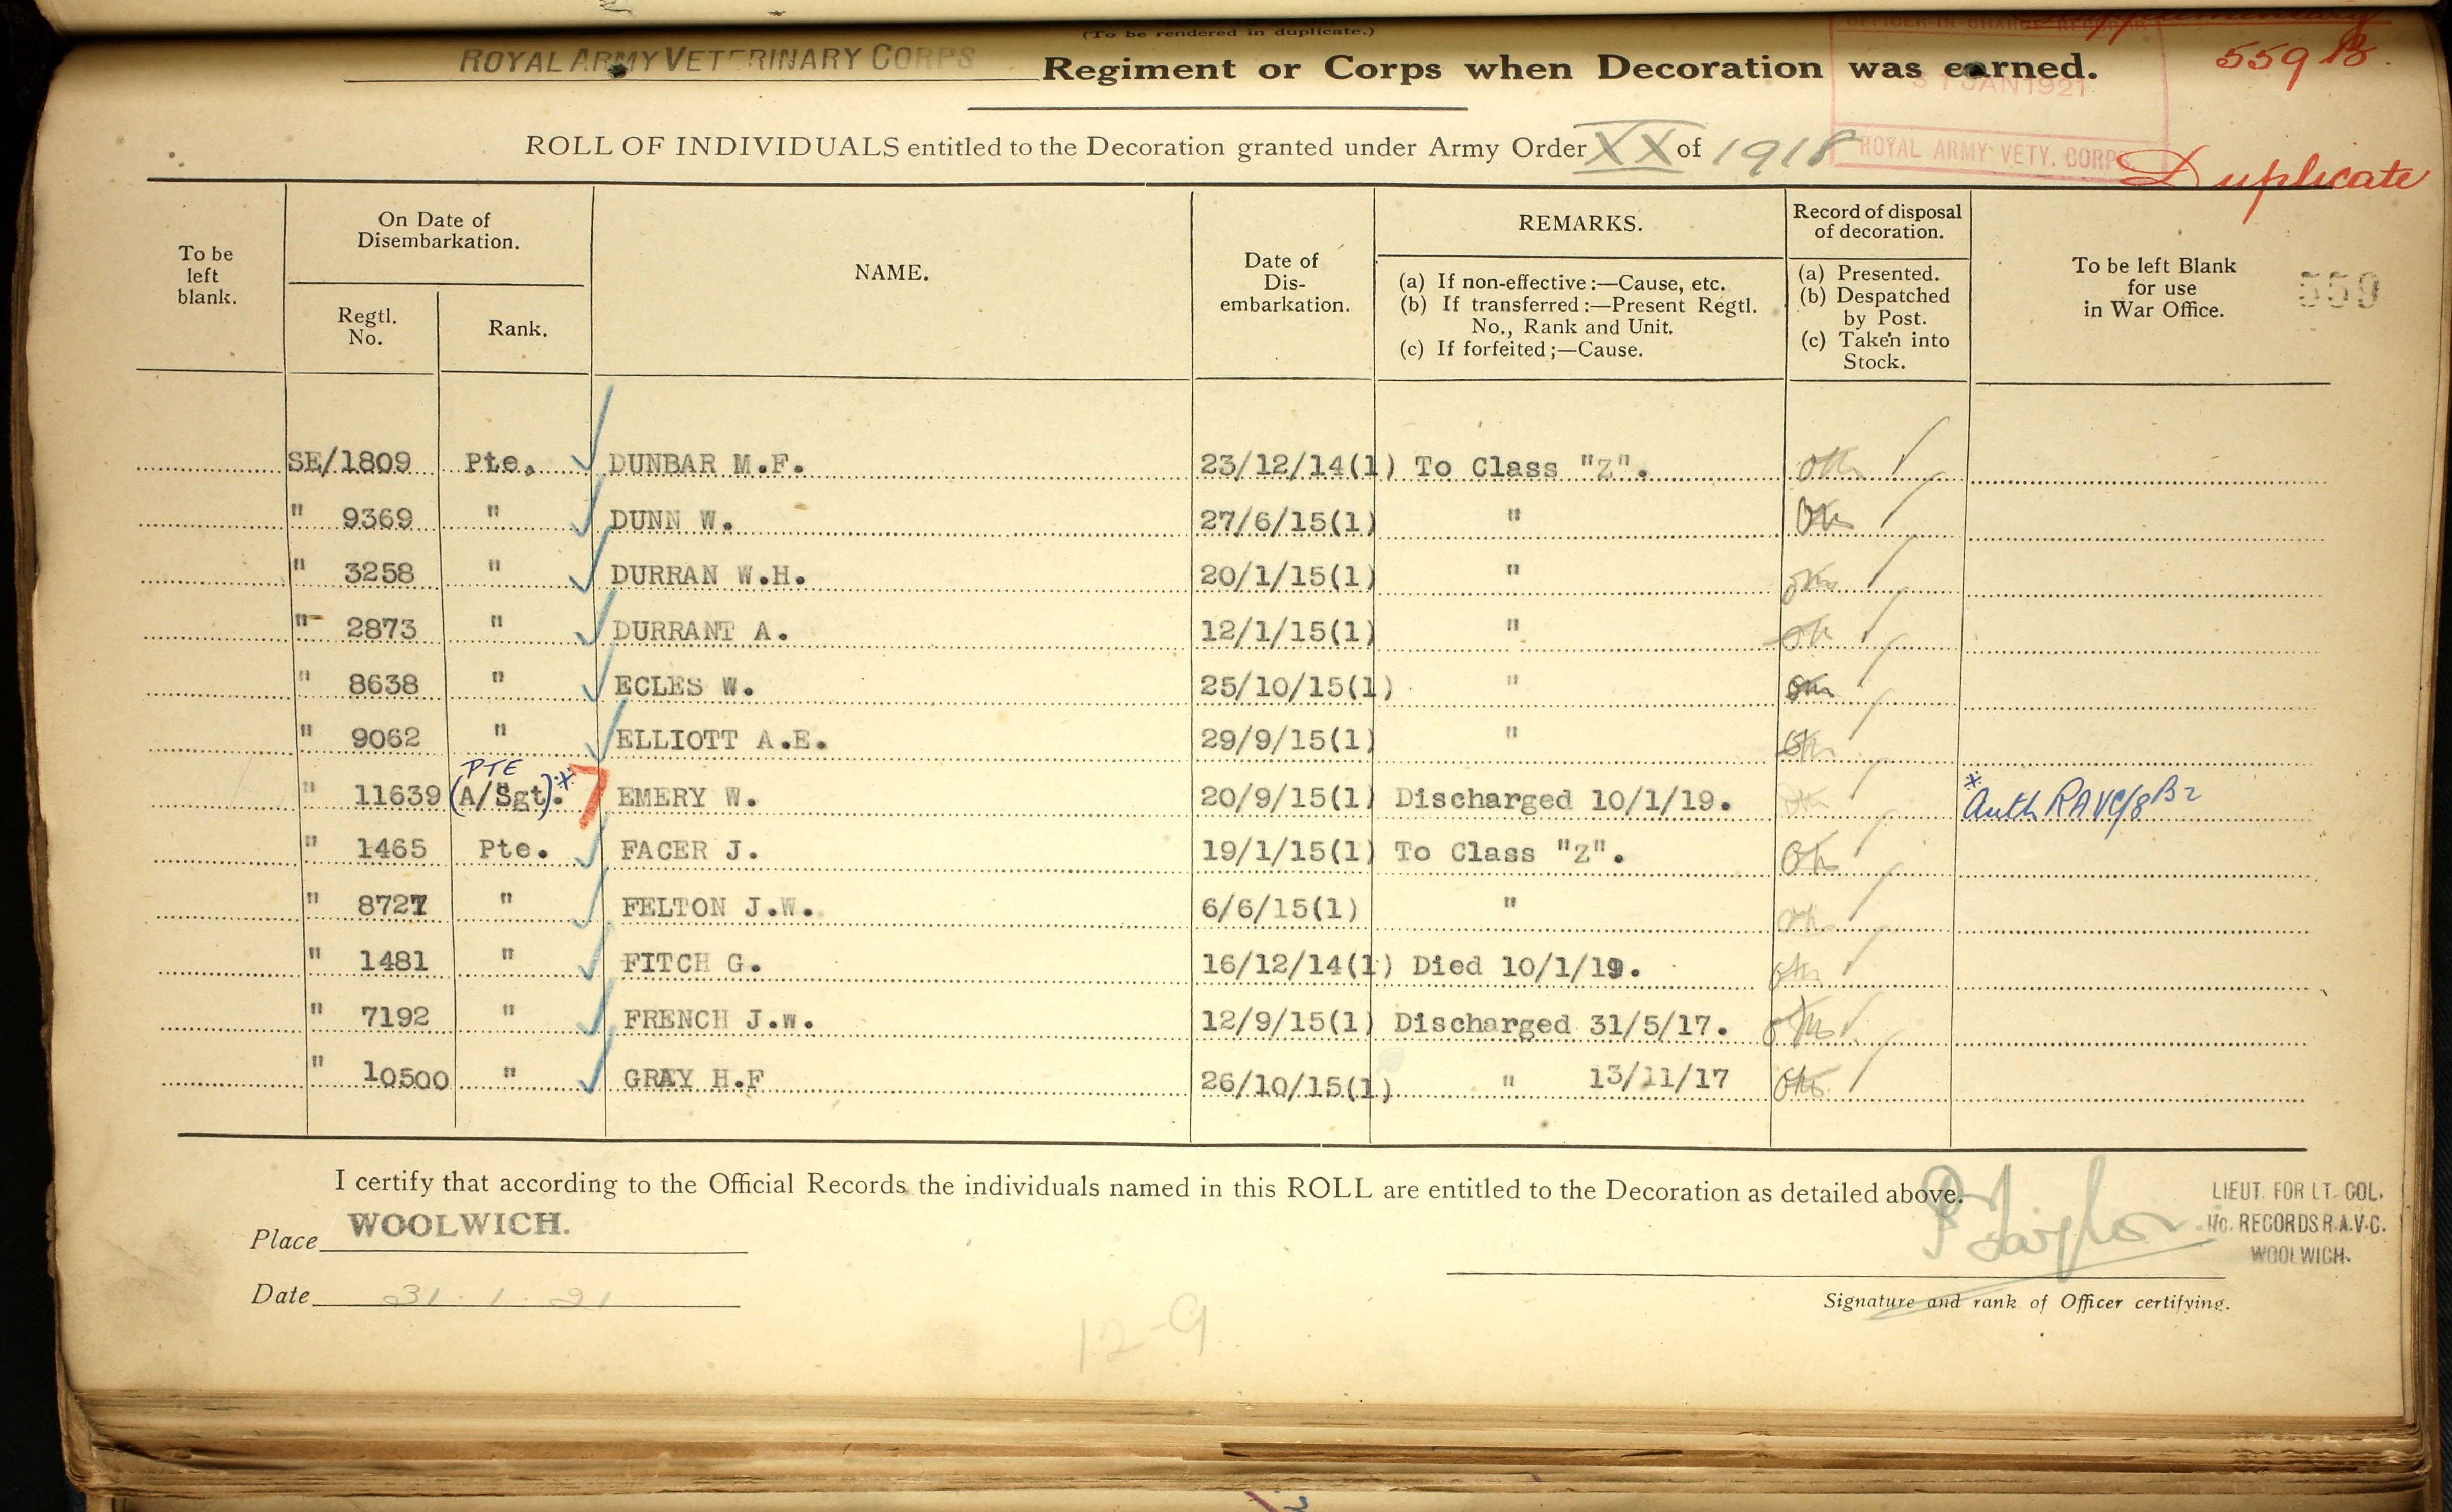 (To be rendered in duplicate.)
ROYAL ARMY VETERINARY CORPS Regiment or Corps when Decoration was earned.
559 B.
OFFICER-IN-CHARGE
31 JAN 1921
ROYAL ARMY VETY. CORPS
ROLL OF INDIVIDUALS entitled to the Decoration granted under Army Order XX of 1918
Duplicate
To be left blank.
On Date of Disembarkation.
Regtl. No.
Rank.
NAME.
Date of Dis-embarkation.
REMARKS.
(a) If non-effective:—Cause, etc.
(b) If transferred:—Present Regtl. No., Rank and Unit.
(c) If forfeited;—Cause.
Record of disposal of decoration.
(a) Presented.
(b) Despatched by Post.
(c) Taken into Stock.
To be left Blank for use in War Office.
559
SE/1809 Pte. DUNBAR M.F. 23/12/14(1) To Class "Z".
" 9369 " DUNN W. 27/6/15(1) "
" 3258 " DURRAN W.H. 20/1/15(1) "
" 2873 " DURRANT A. 12/1/15(1) "
" 8638 " ECLES W. 25/10/15(1) "
" 9062 " ELLIOTT A.E. 29/9/15(1) "
PTE
" 11639 (A/Sgt).* EMERY W. 20/9/15(1) Discharged 10/1/19. * Auth RAVC/8 B2
" 1465 Pte. FACER J. 19/1/15(1) To Class "Z".
" 8727 " FELTON J.W. 6/6/15(1) "
" 1481 " FITCH G. 16/12/14(1) Died 10/1/19.
" 7192 " FRENCH J.W. 12/9/15(1) Discharged 31/5/17.
" 10500 " GRAY H.F 26/10/15(1) " 13/11/17
I certify that according to the Official Records the individuals named in this ROLL are entitled to the Decoration as detailed above.
Place WOOLWICH.
Date 31.1.21
Taylor
LIEUT. FOR LT. COL.
I/c. RECORDS R.A.V.C.
WOOLWICH.
Signature and rank of Officer certifying.
12-9